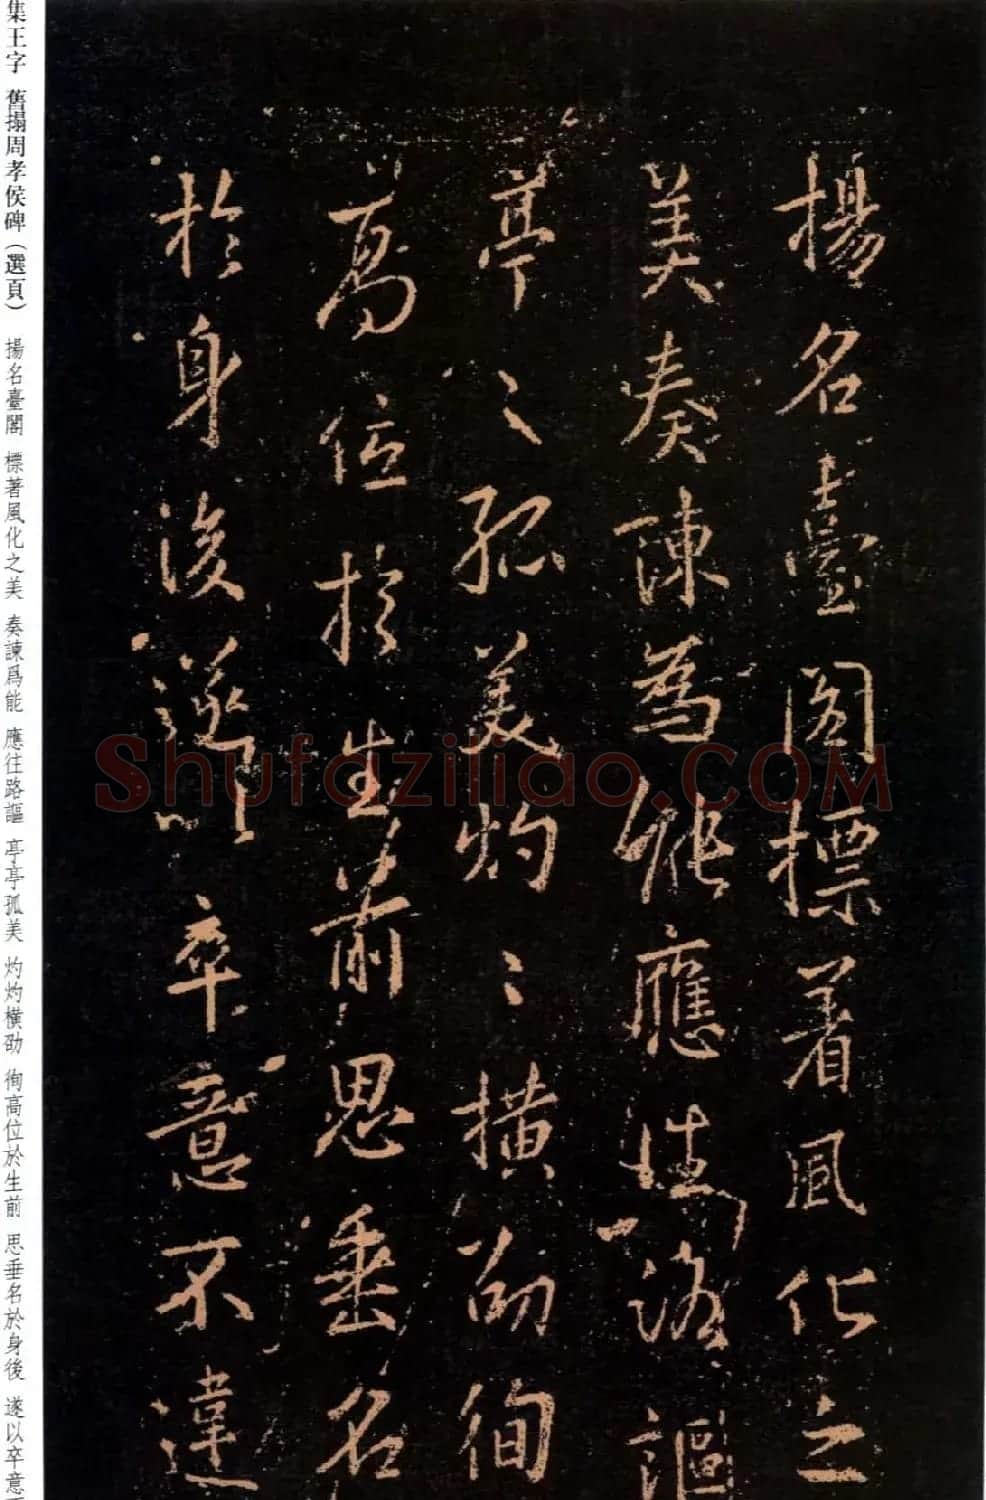 揚名臺閣標著風化之
美奏陳為能應往路謳
亭〻孤美灼〻橫劭徇
高位於生前思垂名
於身後遂以卒意不違
集王字 舊搨周孝侯碑（選頁） 揚名臺閣 標著風化之美 奏諫爲能 應往路謳 亭亭孤美 灼灼橫劭 徇高位於生前 思垂名於身後 遂以卒意
Shufaziliao.COM